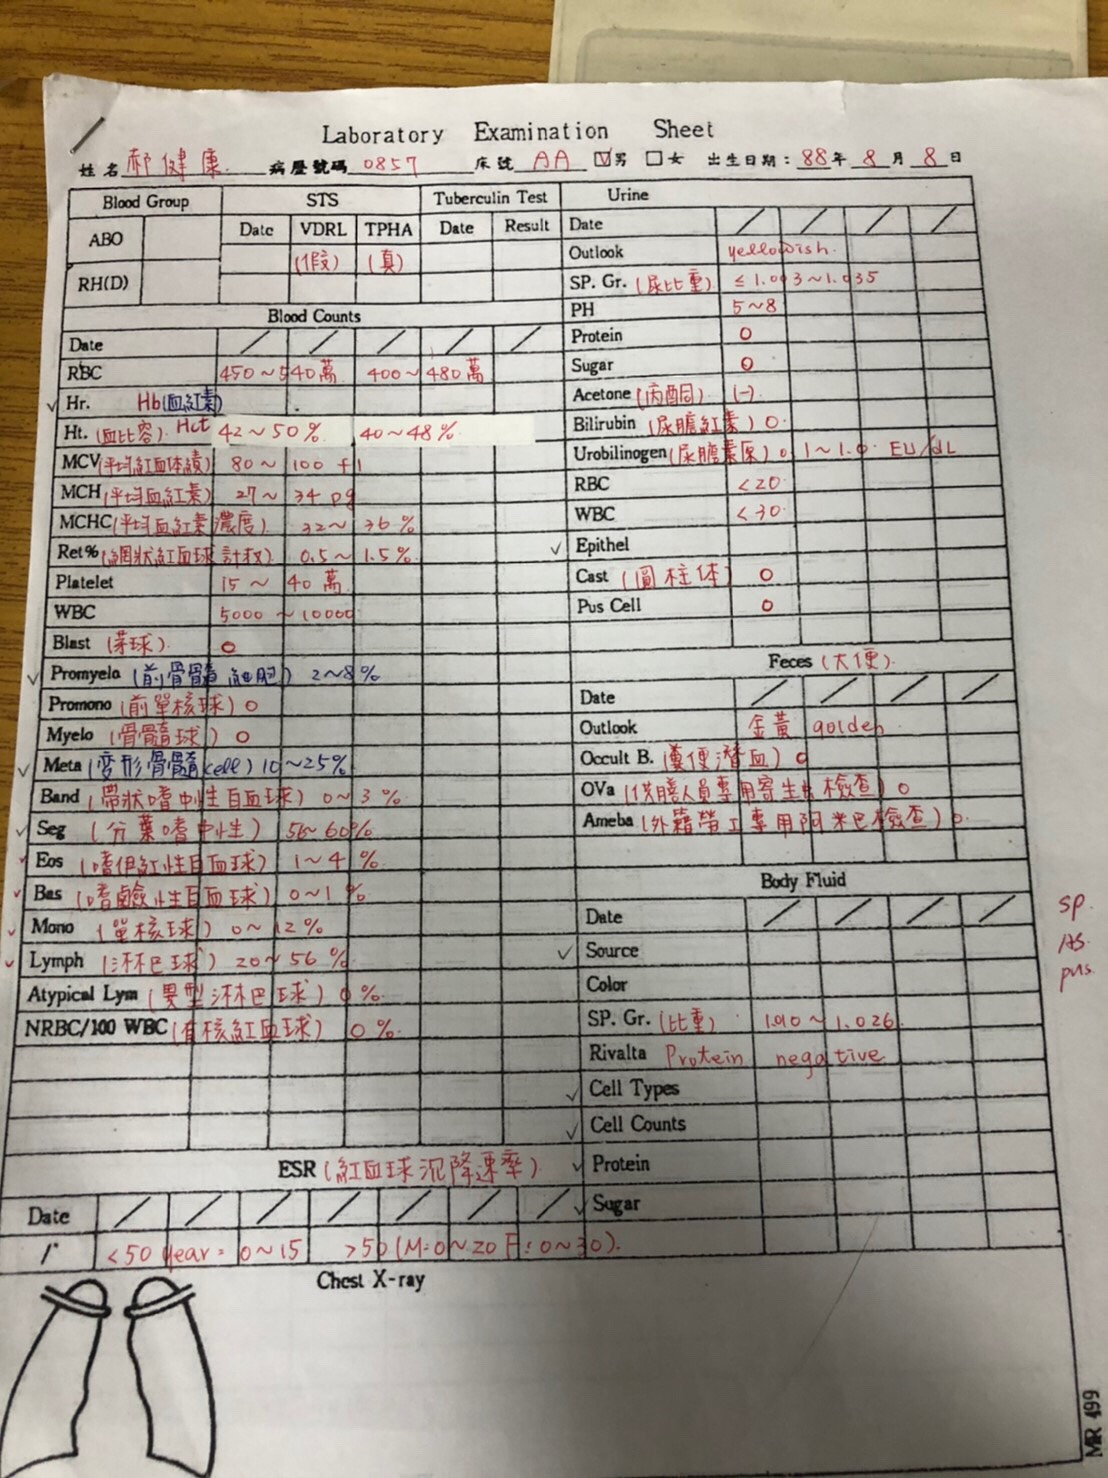 Laboratory Examination Sheet
姓名 郝健康 病歷號碼 0857 床號 AA ☑男 □女 出生日期：88年8月8日
Blood Group STS Tuberculin Test
ABO Date VDRL TPHA Date Result
(假) (真)
RH(D)
Blood Counts
Date / / / / /
RBC 450~540萬 400~480萬
Hr. Hb(血紅素)
Ht. (血比容) Hct 42~50% 40~48%
MCV(平均紅血体積) 80~100 fl
MCH(平均血紅素) 27~34 pg
MCHC(平均血紅素濃度) 32~36%
Ret%(網狀紅血球計數) 0.5~1.5%
Platelet 15~40萬
WBC 5000~10000
Blast (芽球) 0
Promyelo (前骨髓細胞) 2~8%
Promono (前單核球) 0
Myelo (骨髓球) 0
Meta (变形骨髓cell) 10~25%
Band (帶狀嗜中性白血球) 0~3%
Seg (分葉嗜中性) 56~60%
Eos (嗜伊紅性白血球) 1~4%
Bas (嗜鹼性白血球) 0~1%
Mono (單核球) 0~12%
Lymph (淋巴球) 20~56%
Atypical Lym (異型淋巴球) 0%
NRBC/100 WBC (有核紅血球) 0%
ESR (紅血球沉降速率)
Date / / / / / / /
1° <50 year = 0~15 >50 (M:0~20 F:0~30).
Chest X-ray
Urine
Date / / / /
Outlook yellowish
SP. Gr. (尿比重) ≤1.003~1.035
PH 5~8
Protein 0
Sugar 0
Acetone (丙酮) (-)
Bilirubin (尿膽紅素) 0
Urobilinogen (尿膽素原) 0.1~1.0 EU/dL
RBC <20
WBC <30
Epithel
Cast (圓柱体) 0
Pus Cell 0
Feces (大便)
Date / / / /
Outlook 金黃 golden
Occult B. (糞便潛血) 0
OVa (供膳人員專用寄生虫檢查) 0
Ameba (外籍勞工專用阿米巴檢查) 0
Body Fluid
Date / / / /
Source
Color
SP. Gr. (比重) 1.010~1.026
Rivalta Protein negative
Cell Types
Cell Counts
Protein
Sugar
SP.
AS.
pus.
MR 499